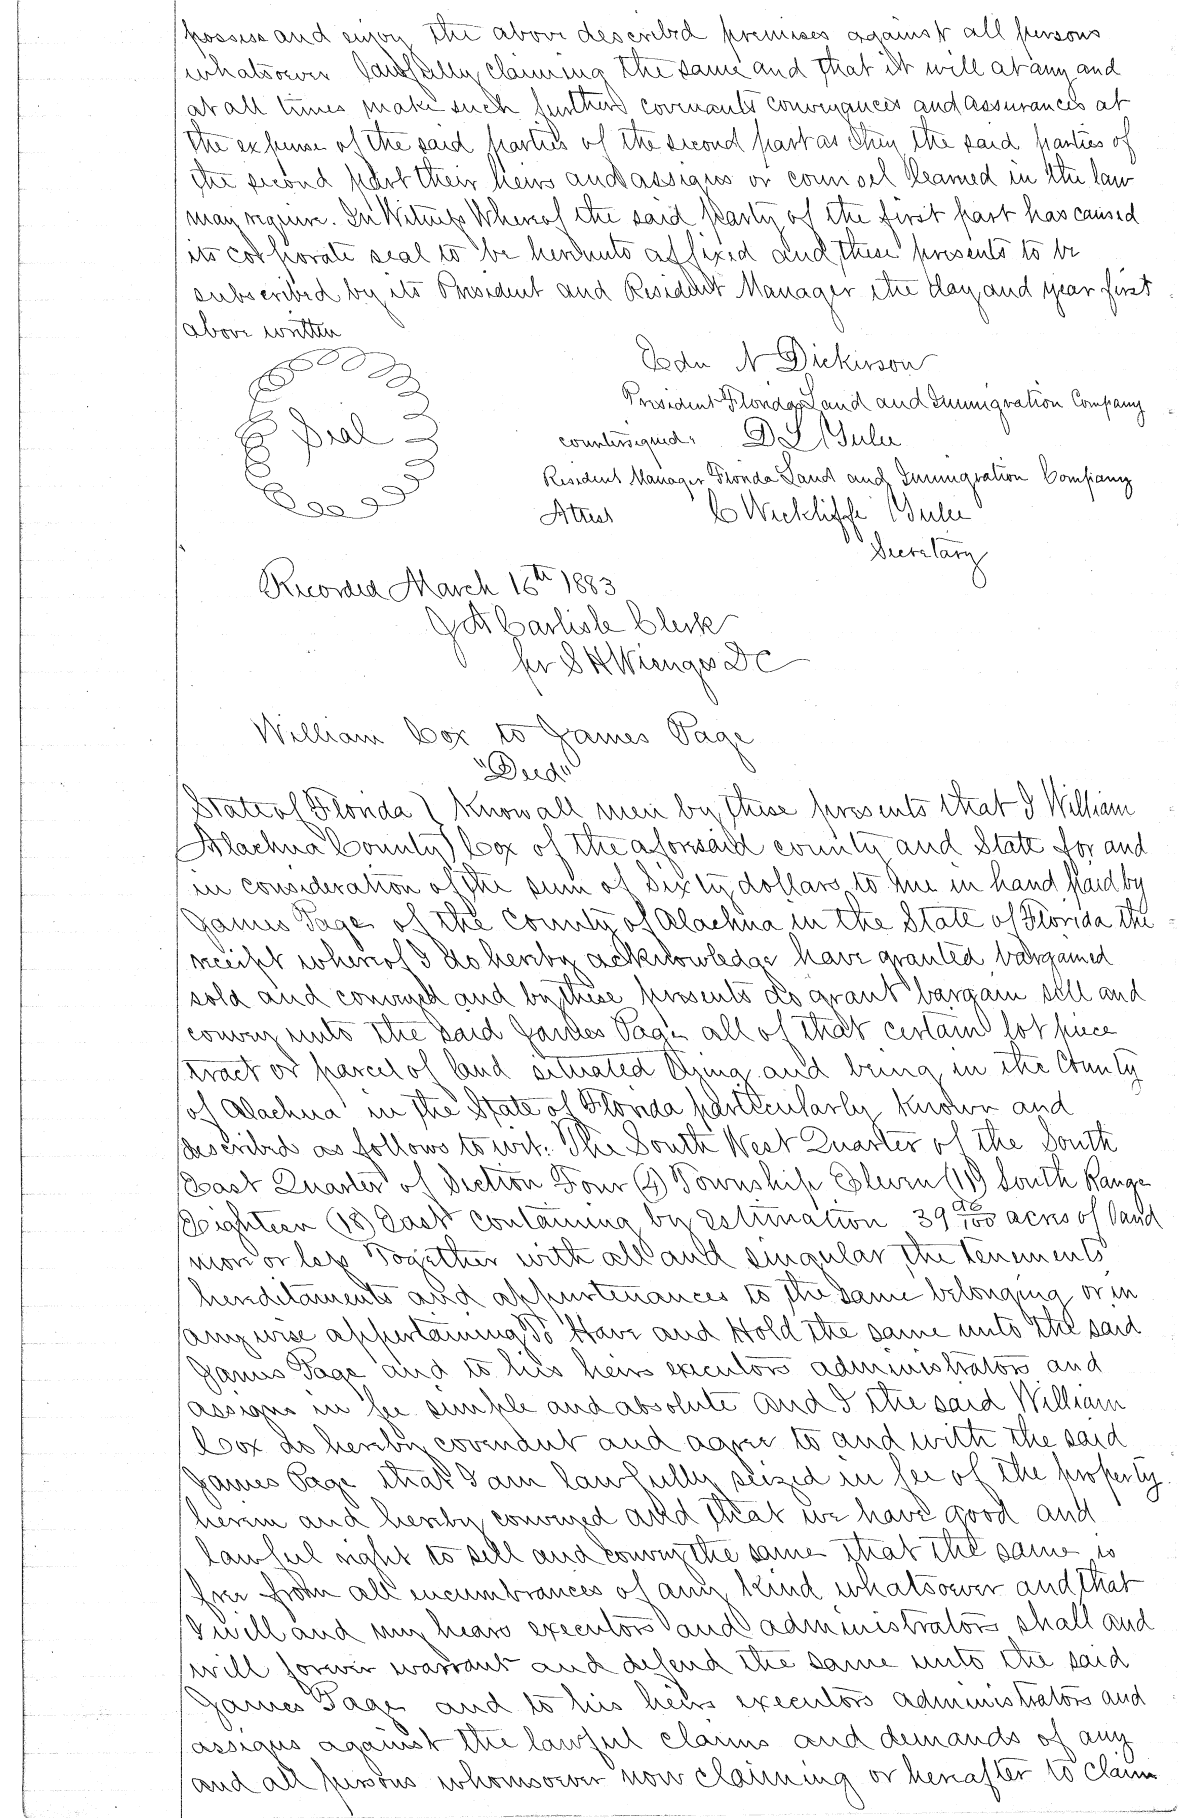 possess and enjoy the above described premises against all persons
whatsoever lawfully claiming the same and that it will at any and
at all times make such further covenants conveyances and assurances at
the expense of the said parties of the second part as they the said parties of
the second part their heirs and assigns or counsel learned in the law
may require. In Witness Whereof the said party of the first part has caused
its corporate seal to be hereunto affixed and these presents to be
subscribed by its President and Resident Manager the day and year first
above written
Edw N Dickerson
President Florida Land and Immigration Company
Seal
countersigned. D L Yulee
Resident Manager Florida Land and Immigration Company
Attest C Wickliffe Yulee
Secretary
Recorded March 16th 1883
J A Carlisle Clerk
per S H Wienges D C
William Cox to James Page
"Deed"
State of Florida } Know all men by these presents that I William
Alachua County } Cox of the aforesaid county and State for and
in consideration of the sum of Sixty dollars to me in hand paid by
James Page of the County of Alachua in the State of Florida the
receipt whereof I do hereby acknowledge have granted bargained
sold and conveyed and by these presents do grant bargain sell and
convey unto the said James Page all of that certain lot piece
tract or parcel of land situated lying and being in the County
of Alachua in the State of Florida particularly known and
described as follows to wit: The South West Quarter of the South
East Quarter of Section Four (4) Township Eleven (11) South Range
Eighteen (18) East containing by Estimation 39 96/100 acres of land
more or less Together with all and singular the tenements
hereditaments and appurtenances to the same belonging or in
any wise appertaining To Have and Hold the same unto the said
James Page and to his heirs executors administrators and
assigns in fee simple and absolute and I the said William
Cox do hereby covenant and agree to and with the said
James Page that I am lawfully seized in fee of the property
herein and hereby conveyed and that we have good and
lawful right to sell and convey the same that the same is
free from all encumbrances of any kind whatsoever and that
I will and my heirs executors and administrators shall and
will forever warrant and defend the same unto the said
James Page and to his heirs executors administrators and
assigns against the lawful claims and demands of any
and all persons whomsoever now claiming or hereafter to claim